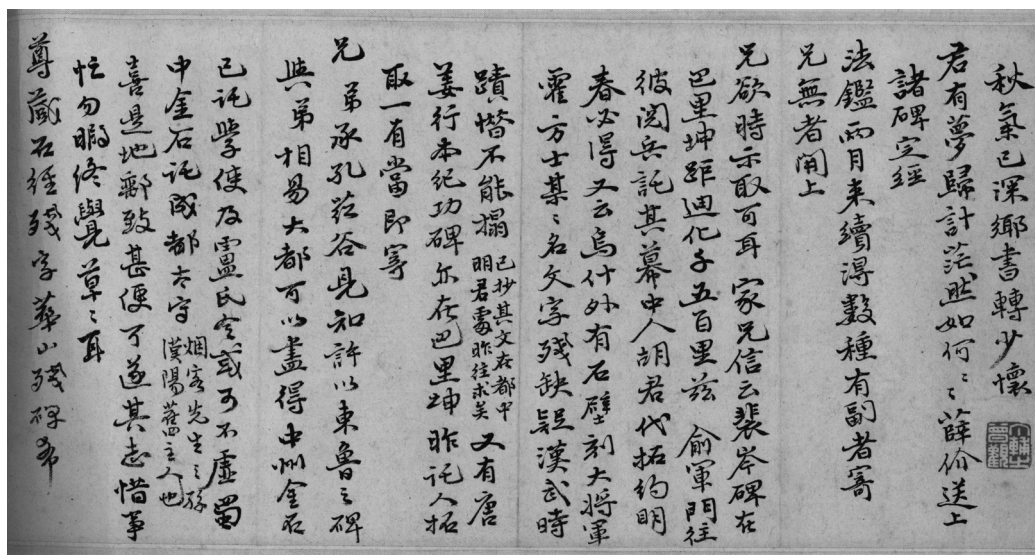 秋氣已深鄉書轉少懷
君有夢歸計茫然如何〻薛价送上
諸碑定經
法鑑兩月来續得数種有副者寄
兄無者開上
兄欲時示取可耳家兄信云裴岑碑在
巴里坤距迪化千五百里兹俞軍門往
彼閱兵託其幕中人胡君代拓約明
春必得又云烏什外有石壁刻大將軍
霍方士某〻名文字殘缺疑漢武時
蹟惜不能搨已抄其文在都中明君處昨往求矣又有唐
姜行本紀功碑亦在巴里坤昨託人拓
取一有當即寄
兄弟承孔荭谷見知許以東魯之碑
與弟相易大都可以盡得中州金石
已託學使及盧氏令或可不虛蜀
中金石託成都太守烟客先生之孫漢陽舊主人也
喜是地鄰致甚便可遂其志惜事
忙勿暇終覺草〻耳
尊藏石經殘字華山殘碑希